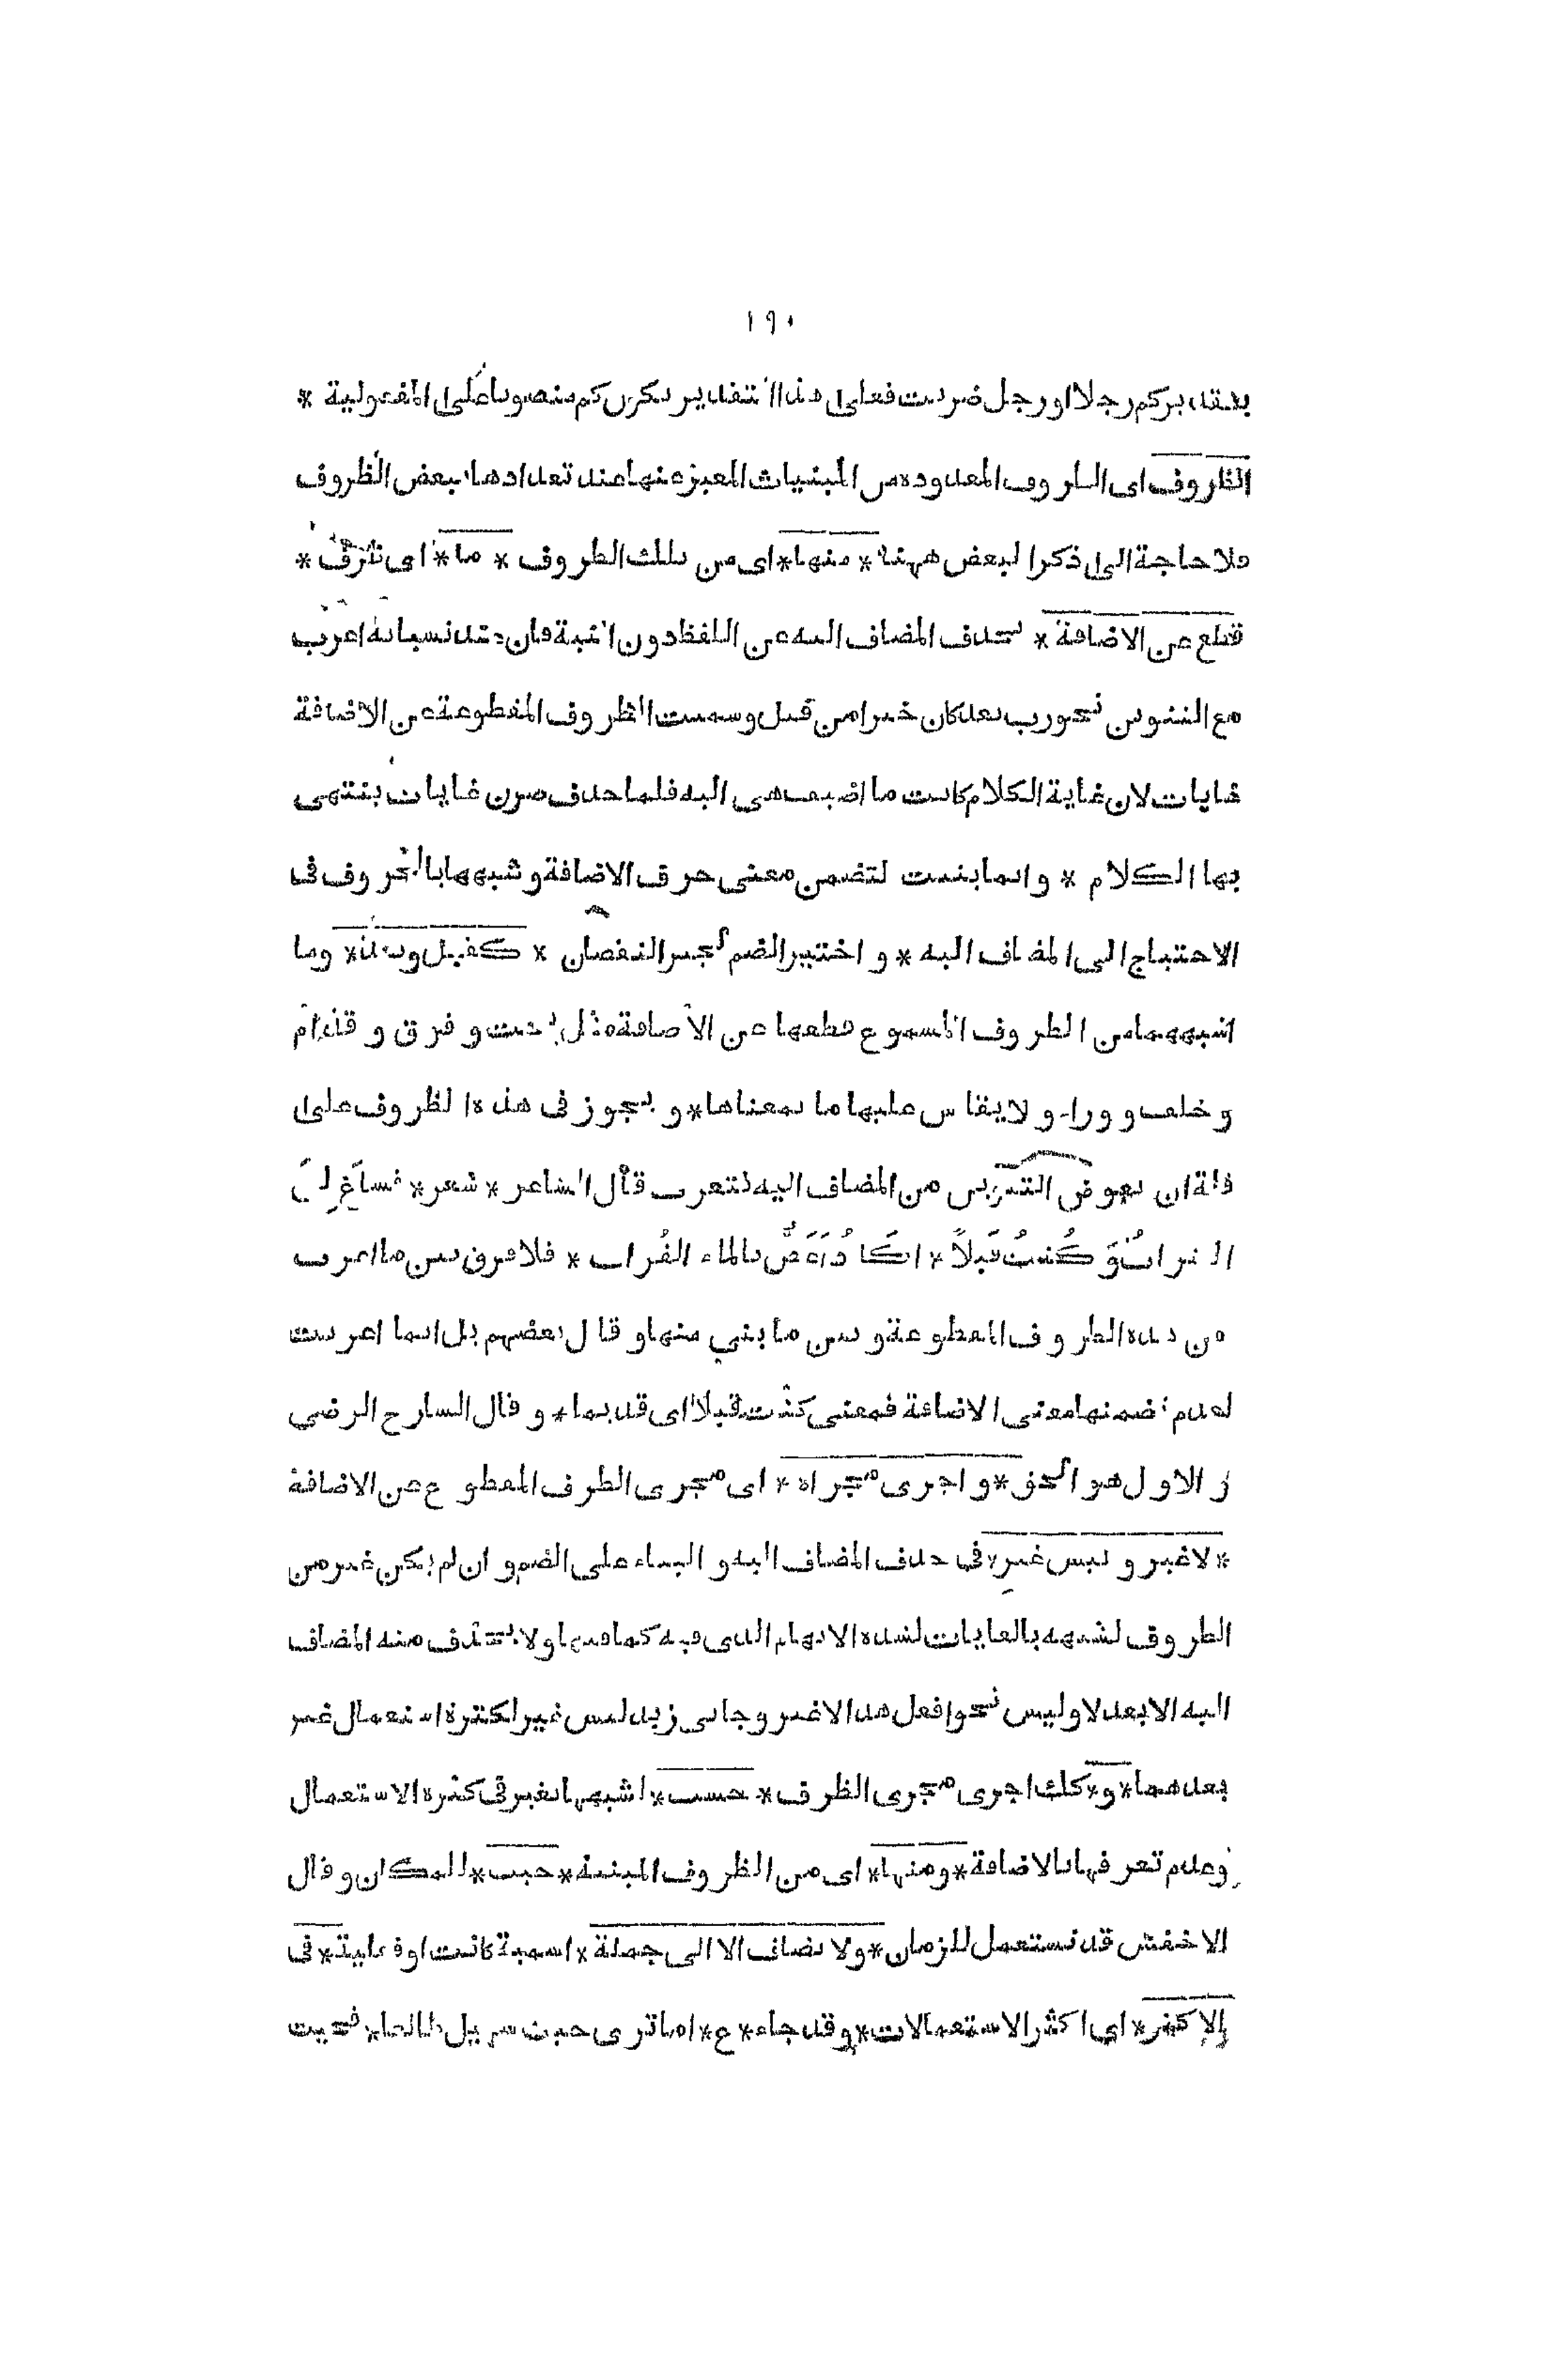 ١٩٠
بتقدير كم رجلا او رجل ضربت فعلى هذا التقدير يكون كم منصوبا على المفعولية *
الظروف اى الظروف المعدودة من المبنيات المعبر عنها عند تعدادها ببعض الظروف
فلا حاجة الى ذكر البعض ههنا * منها * اى من تلك الظروف * ما * اى ظرف *
قطع عن الاضافة * بحذف المضاف اليه عن اللفظ دون النية فان عند نسيانه اعرب
مع التنوين نحو رب بعد كان خيرا من قبل وسميت الظروف المقطوعة عن الاضافة
غايات لان غاية الكلام كانت ما اضيفت هى اليه فلما حذف صرن غايات ينتهى
بها الكلام * وانما بنيت لتضمن معنى حرف الاضافة و شبهها بالحروف فى
الاحتياج الى المضاف اليه * و اختير الضم لجبر النقصان * كقبل وبعد * وما
اشبههما من الظروف المسموع قطعها عن الاضافة مثل تحت و فوق و قدام
و خلف و وراء و لا يقاس عليها ما بمعناها * و يجوز فى هذه الظروف على
قلة ان يعوض التنوين من المضاف اليه فتعرب قال الشاعر * شعر * فساغ لى
الشراب وَكُنتُ قَبلاً * اكَادُ اَغَصُّ بالماء الفُرات * فلا فرق بين ما اعرب
من هذه الظروف المقطوعة و بين ما بنى منها و قال بعضهم بل انما اعربت
لعدم تضمنها معنى الاضافة فمعنى كنت قبلا اى قديما * و قال الشارح الرضى
و الاول هو الحق * و اجرى مجراه * اى مجرى الظرف المقطوع عن الاضافة
* لا غير و ليس غير * فى حذف المضاف اليه و البناء على الضم و ان لم يكن غير من
الظروف لشبهه بالغايات لشدة الابهام الذى فيه كما فيها و لا يحذف منه المضاف
اليه الا بعد لا وليس نحو افعل هذا لا غير و جاءنى زيد ليس غير لكثرة استعمال غير
بعدهما * و * كذلك اجرى مجرى الظرف * حسب * لشبهها بغير فى كثرة الاستعمال
وعدم تعرفها بالاضافة * ومنها * اى من الظروف المبنية * حيث * للمكان و قال
الاخفش قد تستعمل للزمان * و لا يضاف الا الى جملة * اسمية كانت او فعلية * فى
الاكثر * اى اكثر الاستعمالات * وقد جاء * ع * اما ترى حيث سهيل طالعا * فحيث